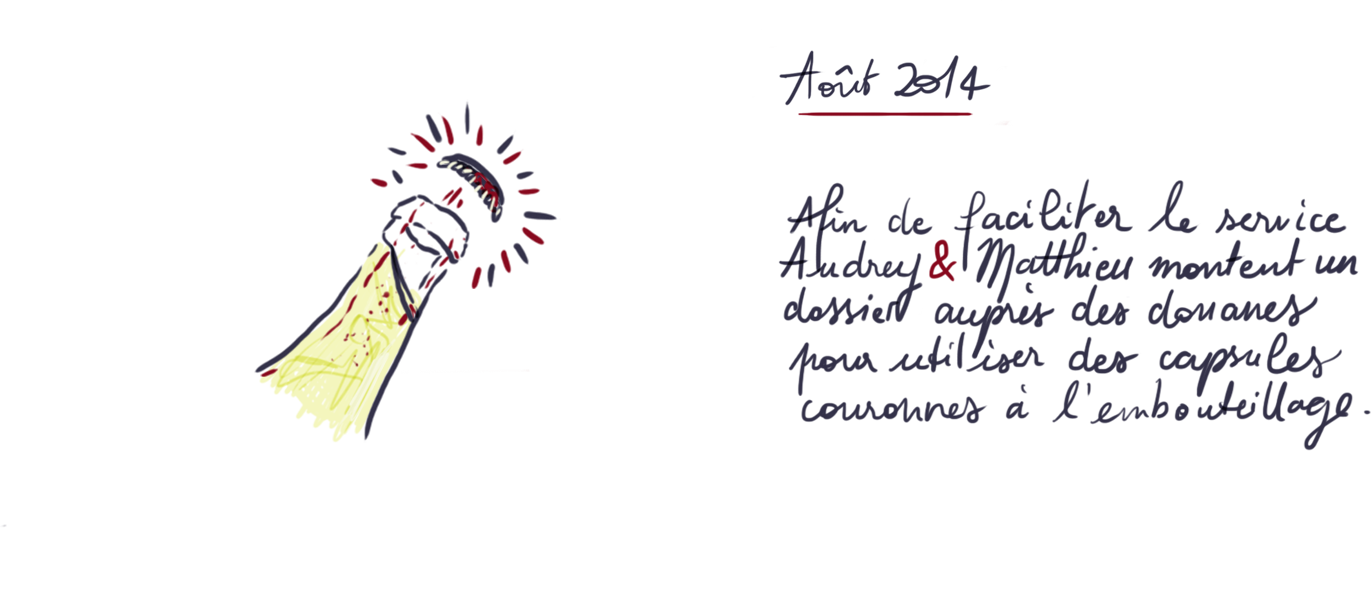 Août 2014
Afin de faciliter le service
Audrey & Matthieu montent un
dossier auprès des douanes
pour utiliser des capsules
couronnes à l'embouteillage.